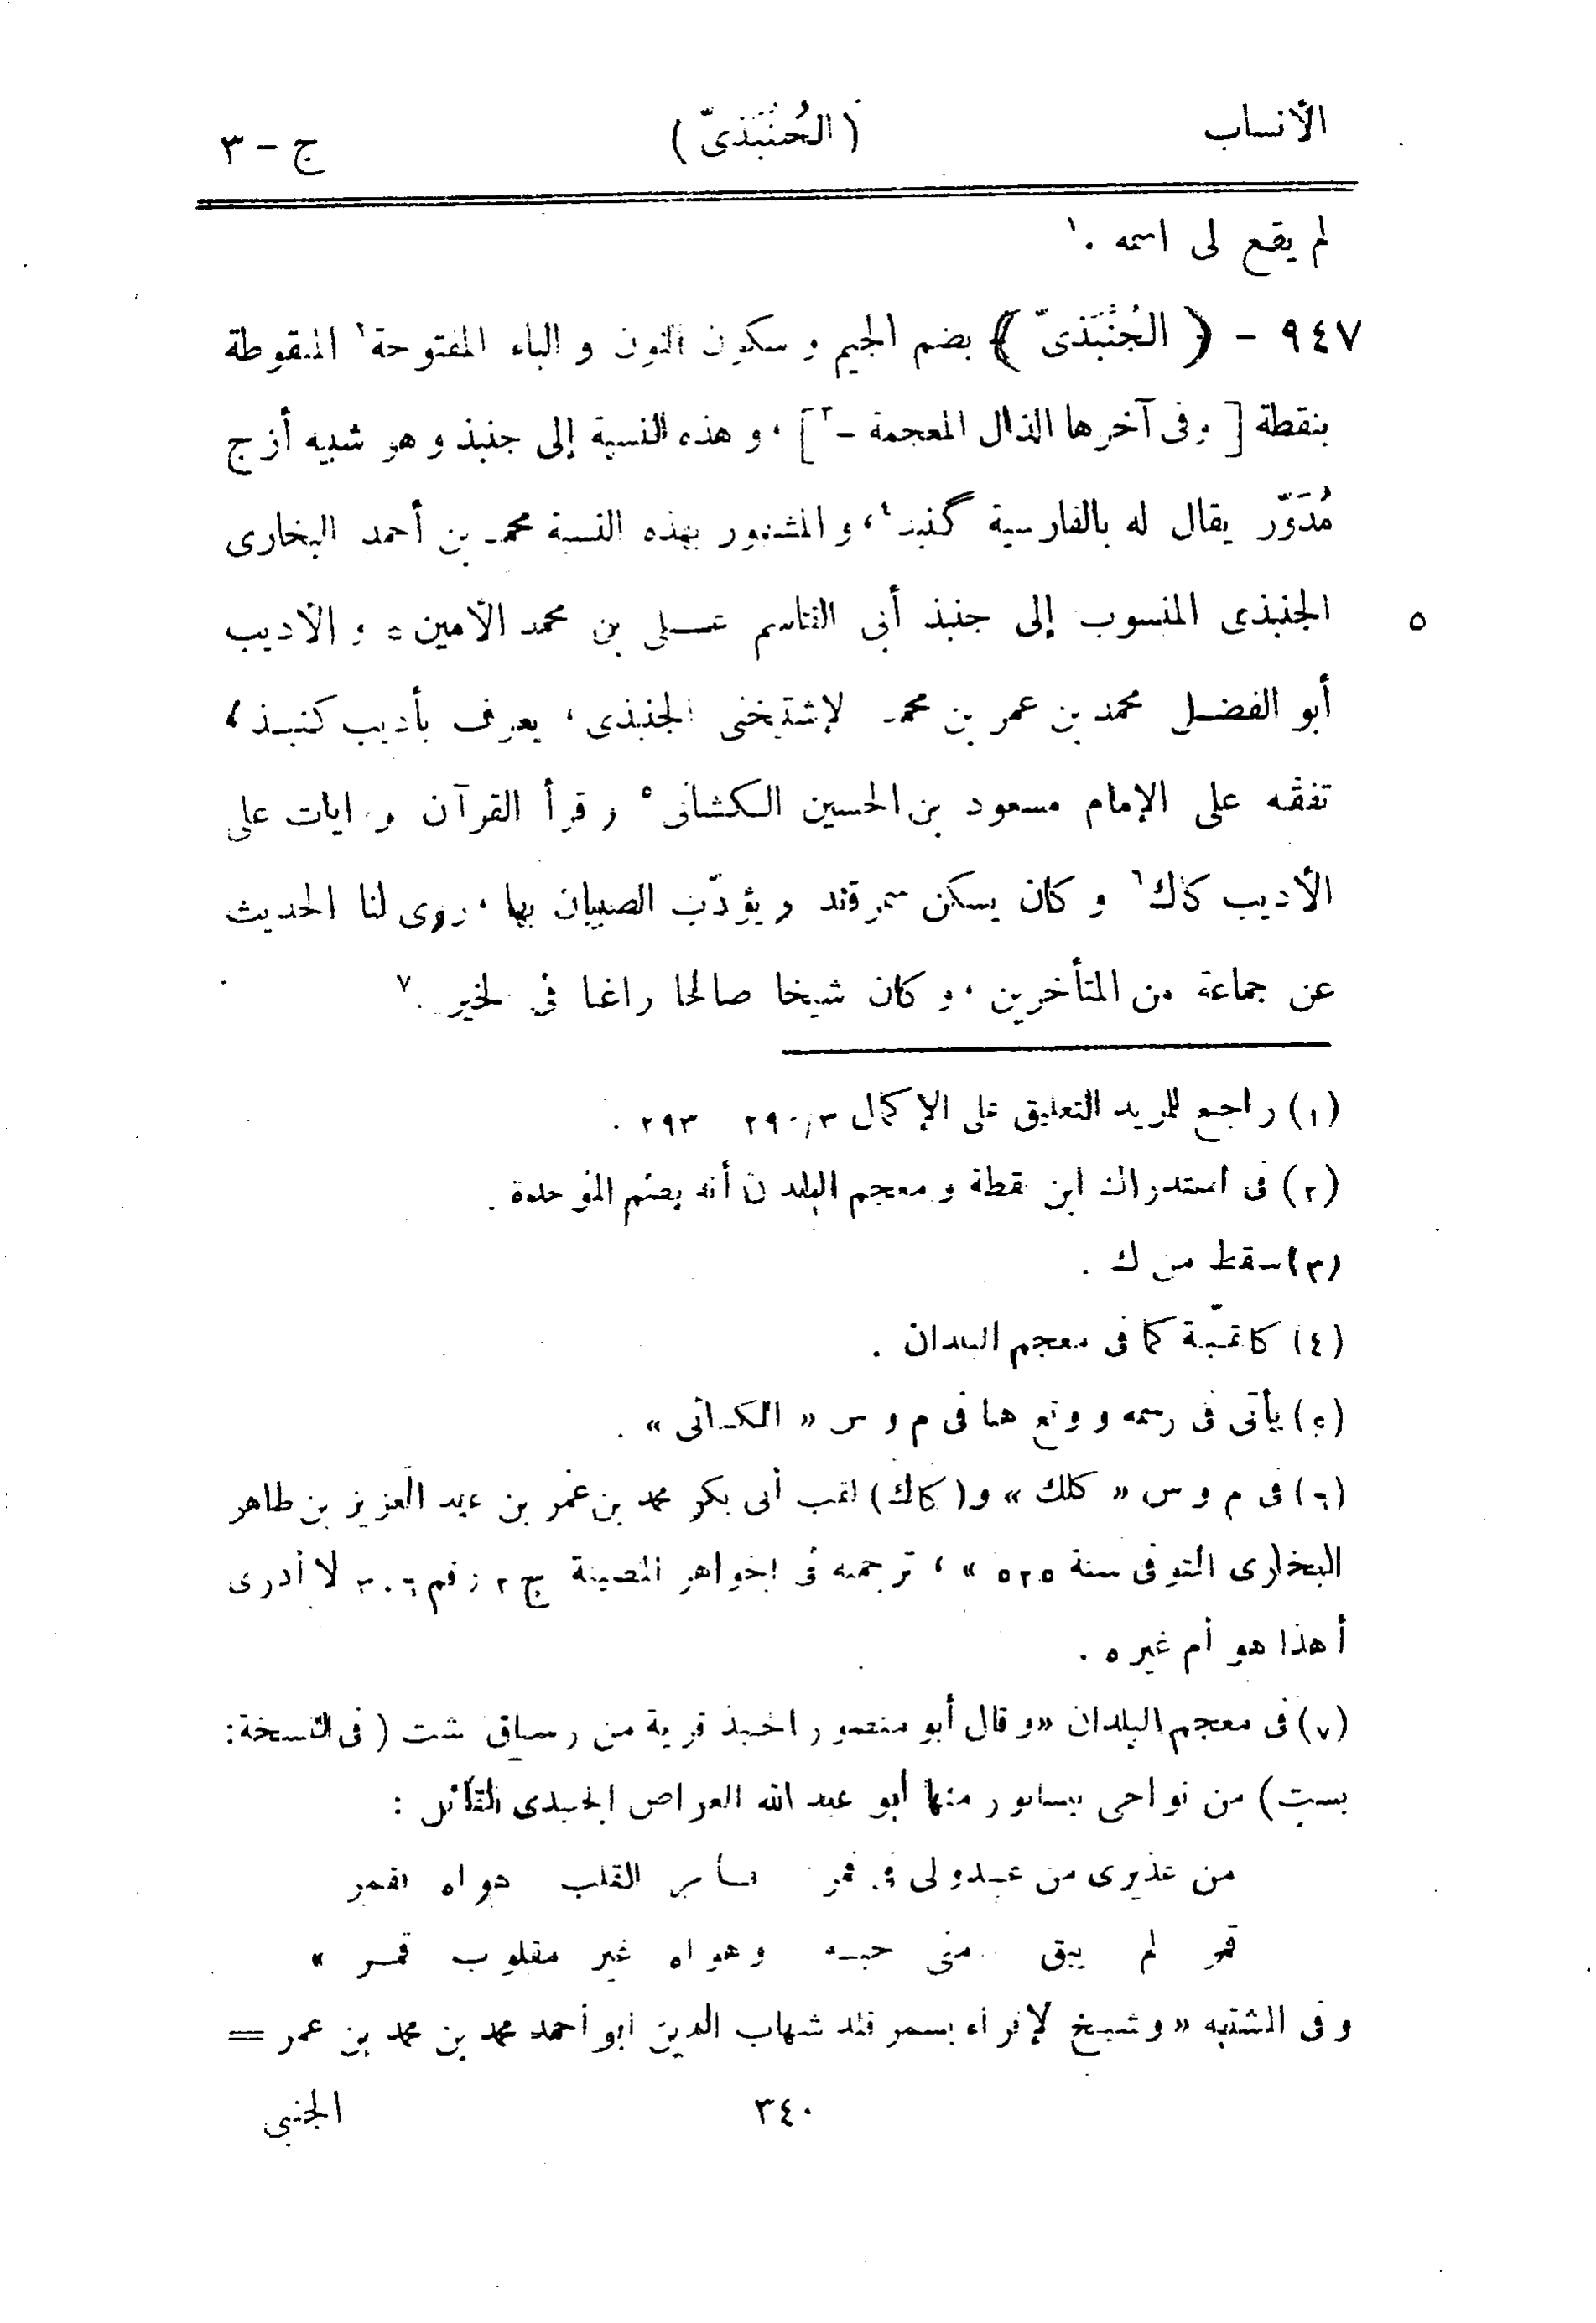 الأنساب (الجُنْبَذىّ) ج - ٣
لم يقع لى اسمه .١
٩٤٧ - ﴿ الجُنْبَذىّ ﴾ بضم الجيم و سكون النون و الباء المفتوحة٢ المنقوطة
بنقطة [ وفى آخرها الذال المعجمة -٣] ، و هذه النسبة إلى جنبذ و هو شبيه أزج
مُدَوّر يقال له بالفارسية گنبد٤، و المشهور بهذه النسبة محمد بن أحمد البخارى
٥ الجنبذى المنسوب إلى جنبذ أبى القاسم على بن محمد الأمين ، و الأديب
أبو الفضل محمد بن عمر بن محمد الإشتيخنى الجنبذى ، يعرف بأديب كنبذ ،
تفقه على الإمام مسعود بن الحسين الكشانى٥ و قرأ القرآن و ايات على
الأديب كاك٦ و كان يسكن سمرقند و يؤدّب الصبيان بها ، روى لنا الحديث
عن جماعة من المتأخرين ، و كان شيخا صالحا راغبا فى الخير .٧
(١) راجع للمزيد التعليق على الإكمال ٣/٢٩٠ ٢٩٣ .
(٢) فى استدراك ابن نقطة و معجم البلدان أنه بضم الموحدة .
(٣) سقط من ك .
(٤) كالقبّة كما فى معجم البلدان .
(٥) يأتى فى رسمه و وقع هنا فى م و س « الكسانى » .
(٦) فى م و س « كلك » و (كاك) لقب أبى بكر محمد بن عمر بن عبد العزيز بن طاهر
البخارى المتوفى سنة ٥٢٥ » ، ترجمته فى الجواهر المضيئة ج ٢ رقم ٣٠٦ لا أدرى
أهذا هو أم غيره .
(٧) فى معجم البلدان « و قال أبو منصور الجنبذ قرية من رستاق بشت (فى النسخة:
بست) من نواحى نيسابور منها أبو عبد الله الجنبذى القائل :
من عذيرى من عبدولى فى قمر القلب هواه فقمر
قمر لم يبق منى حبه وهواه غير مقلوب قمر »
و فى المشتبه « و شيخ الإقراء بسمرقند شهاب الدين أبو أحمد محمد بن محمد بن عمر =
٣٤٠ الجنبى